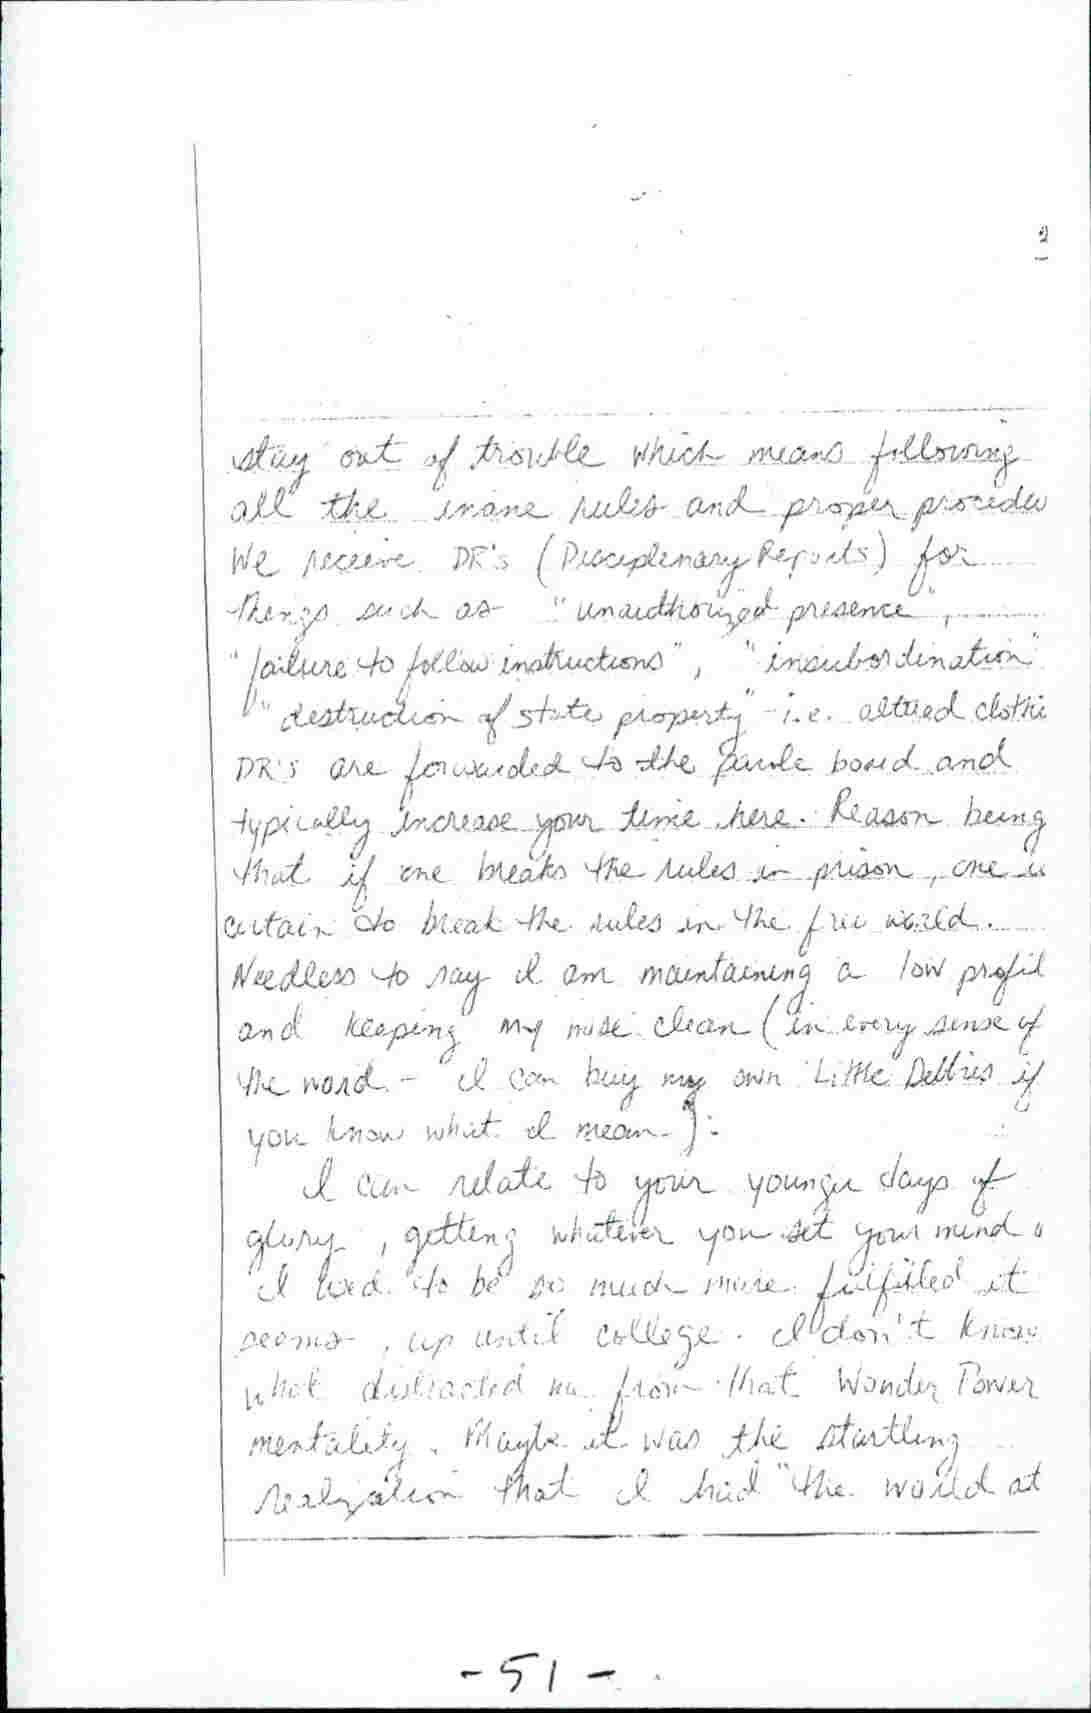 2
stay out of trouble which means following
all the inane rules and proper procedu
We receive DR's (Disciplenary Reports) for
things such as "unauthorized presence",
"failure to follow instructions", "insubordination"
"destruction of state property" - i.e. altered clothi
DR's are forwarded to the parole board and
typically increase your time here. Reason being
that if one breaks the rules in prison, one is
certain to break the rules in the free world.
Needless to say I am maintaining a low profil
and keeping my nose clean (in every sense of
the word - I can buy my own Little Debbies if
you know what I mean.).
I can relate to your younger days of
glory, getting whatever you set your mind o
I used to be so much more fulfilled it
seems, up until college. I don't know
what distracted me from that Wonder Power
mentality. Maybe it was the startling
realization that I had "the world at
- 51 -